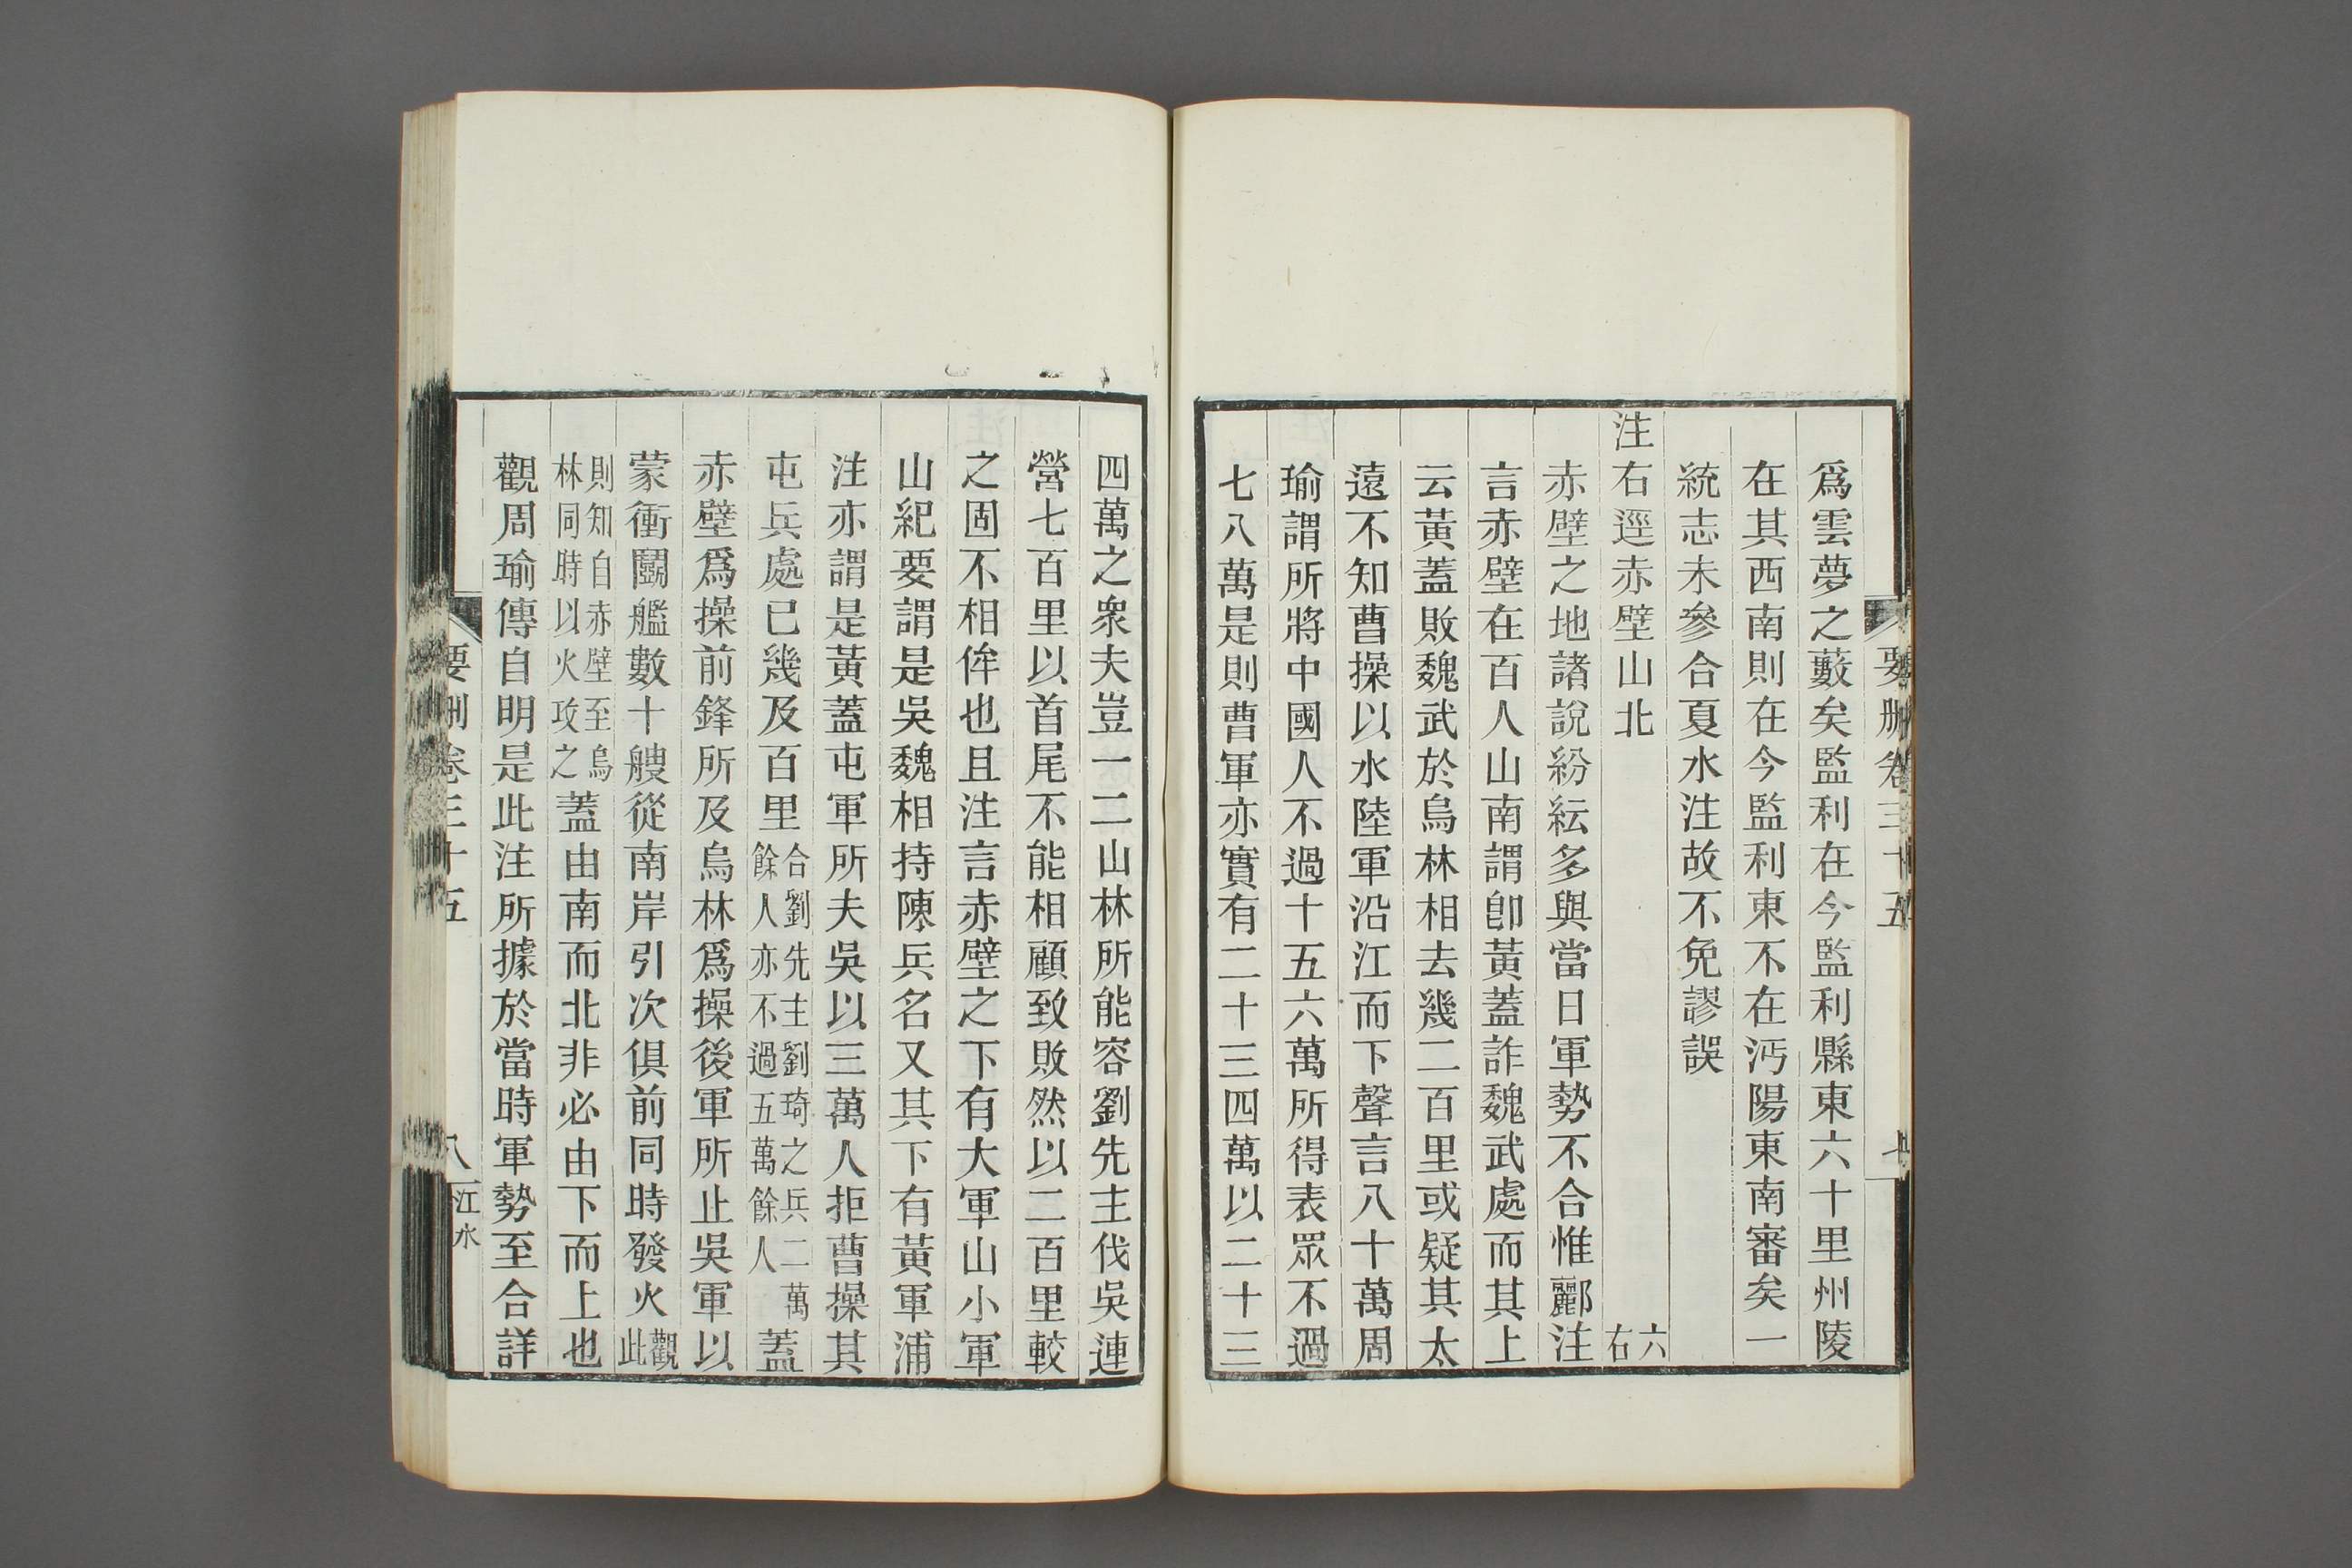 爲雲夢之藪矣監利在今監利縣東六十里州陵
在其西南則在今監利東不在沔陽東南審矣一
統志未參合夏水注故不免謬誤
注右逕赤壁山北 六右
赤壁之地諸說紛紜多與當日軍勢不合惟酈注
言赤壁在百人山南謂卽黃蓋詐魏武處而其上
云黃蓋敗魏武於烏林相去幾二百里或疑其太
遠不知曹操以水陸軍沿江而下聲言八十萬周
瑜謂所將中國人不過十五六萬所得表眾不過
七八萬是則曹軍亦實有二十三四萬以二十三
要删卷三十五 七
四萬之衆夫豈一二山林所能容劉先主伐吳連
營七百里以首尾不能相顧致敗然以二百里較
之固不相侔也且注言赤壁之下有大軍山小軍
山紀要謂是吳魏相持陳兵名又其下有黃軍浦
注亦謂是黃蓋屯軍所夫吳以三萬人拒曹操其
屯兵處已幾及百里合劉先主劉琦之兵二萬餘人亦不過五萬餘人蓋
赤壁爲操前鋒所及烏林爲操後軍所止吳軍以
蒙衝鬬艦數十艘從南岸引次俱前同時發火觀此
則知自赤壁至烏林同時以火攻之蓋由南而北非必由下而上也
觀周瑜傳自明是此注所據於當時軍勢至合詳
要删卷三十五 八 江水